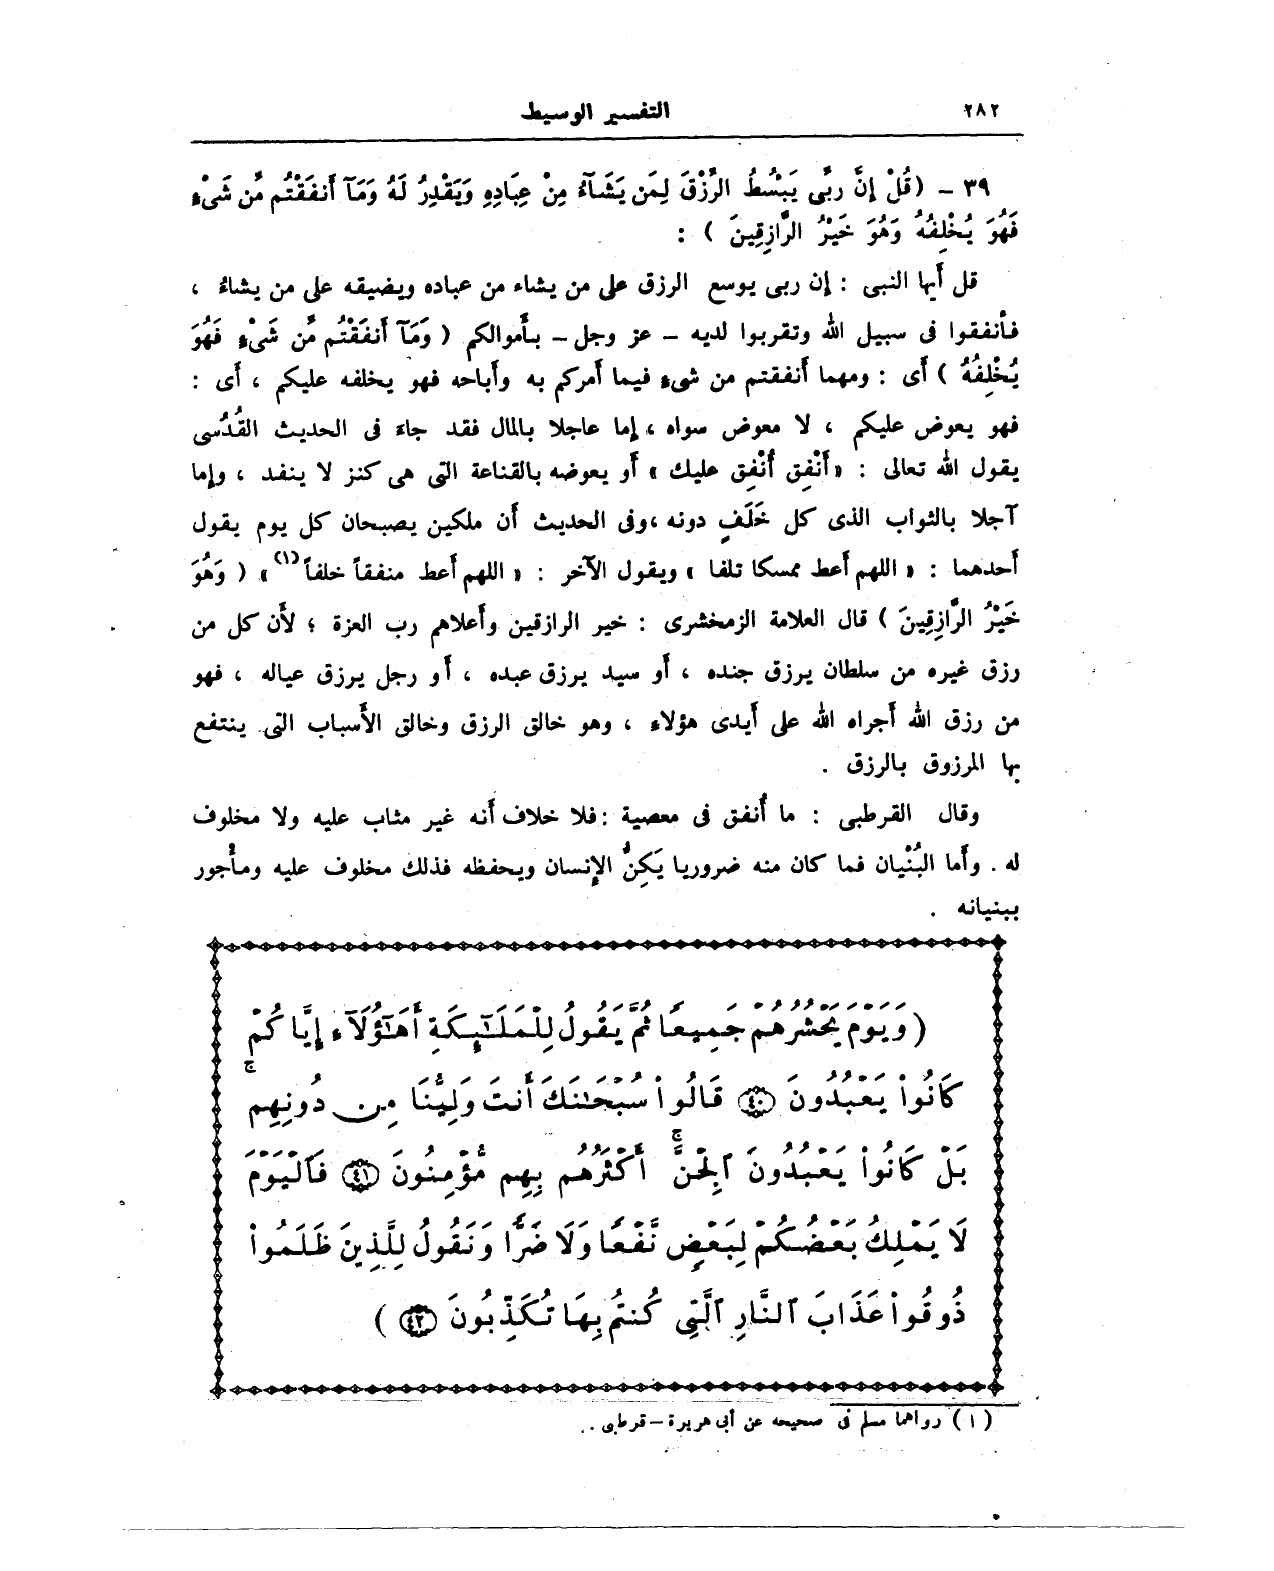 ٢٨٢ التفسير الوسيط
٣٩ - (قُلْ إِنَّ رَبِّى يَبْسُطُ الرِّزْقَ لِمَن يَشَآءُ مِنْ عِبَادِهِ وَيَقْدِرُ لَهُ وَمَآ أَنفَقْتُم مِّن شَىْءٍ
فَهُوَ يُخْلِفُهُ وَهُوَ خَيْرُ الرَّازِقِينَ ) :
قل أيها النبى : إن ربى يوسع الرزق على من يشاء من عباده ويضيقه على من يشاءُ ،
فأَنفقوا فى سبيل الله وتقربوا لديه - عز وجل - بأَموالكم ( وَمَآ أَنفَقْتُم مِّن شَىْءٍ فَهُوَ
يُخْلِفُهُ ) أَى : ومهما أَنفقتم من شىءٍ فيما أَمركم به وأَباحه فهو يخلفه عليكم ، أَى :
فهو يعوض عليكم ، لا معوض سواه ، إما عاجلا بالمال فقد جاءَ فى الحديث القُدُسى
يقول الله تعالى : «أَنْفِق أُنْفِق عليك » أَو يعوضه بالقناعة التى هى كنز لا ينفد ، وإما
آجلا بالثواب الذى كل خَلَفٍ دونه ،وفى الحديث أَن ملكين يصبحان كل يوم يقول
أَحدهما : « اللهم أَعط ممسكا تلفا » ويقول الآخر : « اللهم أَعط منفقاً خلفاً (١) » ( وَهُوَ
خَيْرُ الرَّازِقِينَ ) قال العلامة الزمخشرى : خير الرازقين وأَعلاهم رب العزة ؛ لأَن كل من
رزق غيره من سلطان يرزق جنده ، أَو سيد يرزق عبده ، أَو رجل يرزق عياله ، فهو
من رزق الله أَجراه الله على أَيدى هؤلاء ، وهو خالق الرزق وخالق الأَسباب التى ينتفع
بها المرزوق بالرزق .
وقال القرطبى : ما أُنفق فى معصية : فلا خلاف أَنه غير مثاب عليه ولا مخلوف
له . وأَما البُنْيان فما كان منه ضروريا يَكِنُّ الإِنسان ويحفظه فذلك مخلوف عليه ومأْجور
ببنيانه .
( وَيَوْمَ يَحْشُرُهُمْ جَمِيعًا ثُمَّ يَقُولُ لِلْمَلَٰٓئِكَةِ أَهَٰٓؤُلَآءِ إِيَّاكُمْ
كَانُوا۟ يَعْبُدُونَ ٤٠ قَالُوا۟ سُبْحَٰنَكَ أَنتَ وَلِيُّنَا مِن دُونِهِم ۚ
بَلْ كَانُوا۟ يَعْبُدُونَ ٱلْجِنَّ ۚ أَكْثَرُهُم بِهِم مُّؤْمِنُونَ ٤١ فَٱلْيَوْمَ
لَا يَمْلِكُ بَعْضُكُمْ لِبَعْضٍ نَّفْعًا وَلَا ضَرًّا وَنَقُولُ لِلَّذِينَ ظَلَمُوا۟
ذُوقُوا۟ عَذَابَ ٱلنَّارِ ٱلَّتِى كُنتُم بِهَا تُكَذِّبُونَ ٤٢ )
( ١ ) رواهما مسلم فى صحيحه عن أبى هريرة - قرطبى .